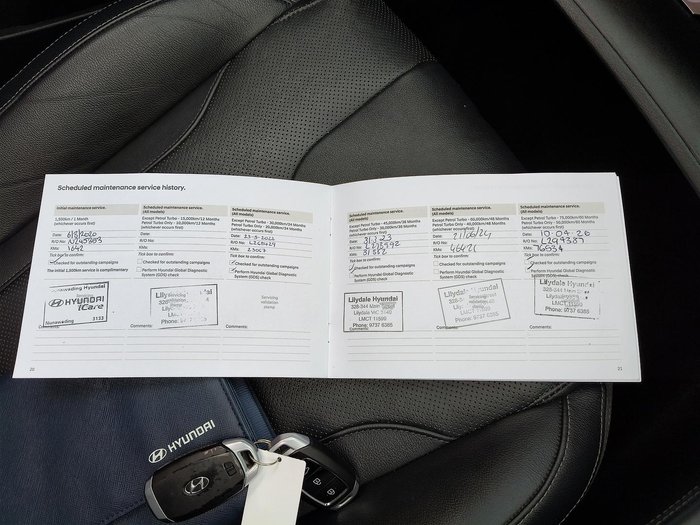 Scheduled maintenance service history.
Initial maintenance service.
1,500km / 1 Month
(whichever occurs first)
Date:
R/O No:
KMs: 1642
Tick box to confirm:
Checked for outstanding campaigns
The initial 1,500km service is complimentary
Nunawading Hyundai
HYUNDAI
iCare
Nunawading 3133
Comments:
Scheduled maintenance service.
(All models)
Except Petrol Turbo - 15,000km/12 Months
Petrol Turbo Only - 10,000km/12 Months
(whichever occurs first)
Date:
R/O No:
KMs:
Tick box to confirm:
Checked for outstanding campaigns
Perform Hyundai Global Diagnostic
System (GDS) check
Servicing
validation
stamp
Comments:
Scheduled maintenance service.
(All models)
Except Petrol Turbo - 30,000km/24 Months
Petrol Turbo Only - 20,000km/24 Months
(whichever occurs first)
Date:
R/O No:
KMs:
Tick box to confirm:
Checked for outstanding campaigns
Perform Hyundai Global Diagnostic
System (GDS) check
Servicing
validation
stamp
Comments:
20
Scheduled maintenance service.
(All models)
Except Petrol Turbo - 45,000km/36 Months
Petrol Turbo Only - 30,000km/36 Months
(whichever occurs first)
Date:
R/O No:
KMs:
Tick box to confirm:
Checked for outstanding campaigns
Perform Hyundai Global Diagnostic
System (GDS) check
Lilydale Hyundai
Lilydale VIC 3140
LMCT 11599
Phone: 9737 6385
Comments:
Scheduled maintenance service.
(All models)
Except Petrol Turbo - 60,000km/48 Months
Petrol Turbo Only - 40,000km/48 Months
(whichever occurs first)
Date: 21/06/24
R/O No:
KMs: 46421
Tick box to confirm:
Checked for outstanding campaigns
Perform Hyundai Global Diagnostic
System (GDS) check
Phone: 9737 6385
Comments:
Scheduled maintenance service.
(All models)
Except Petrol Turbo - 75,000km/60 Months
Petrol Turbo Only - 50,000km/60 Months
(whichever occurs first)
Date: 10.04.26
R/O No: L299387
KMs: 76534
Tick box to confirm:
Checked for outstanding campaigns
Perform Hyundai Global Diagnostic
System (GDS) check
Phone: 9737 6385
Comments:
21
HYUNDAI